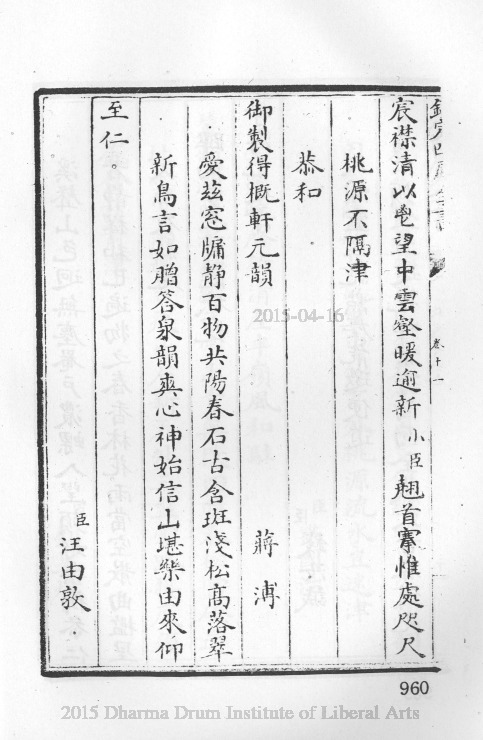 欽定四庫全書
卷十一
宸襟清以曠望中雲壑暖逾新小臣翹首搴惟處咫尺
桃源不隔津
恭和
御製得概軒元韻
蔣溥
愛茲窓牖静百物共陽春石古含斑淺松髙落翠
新鳥言如贈答泉韻爽心神始信山堪樂由來仰
至仁
臣汪由敦
2015-04-16
960
2015 Dharma Drum Institute of Liberal Arts